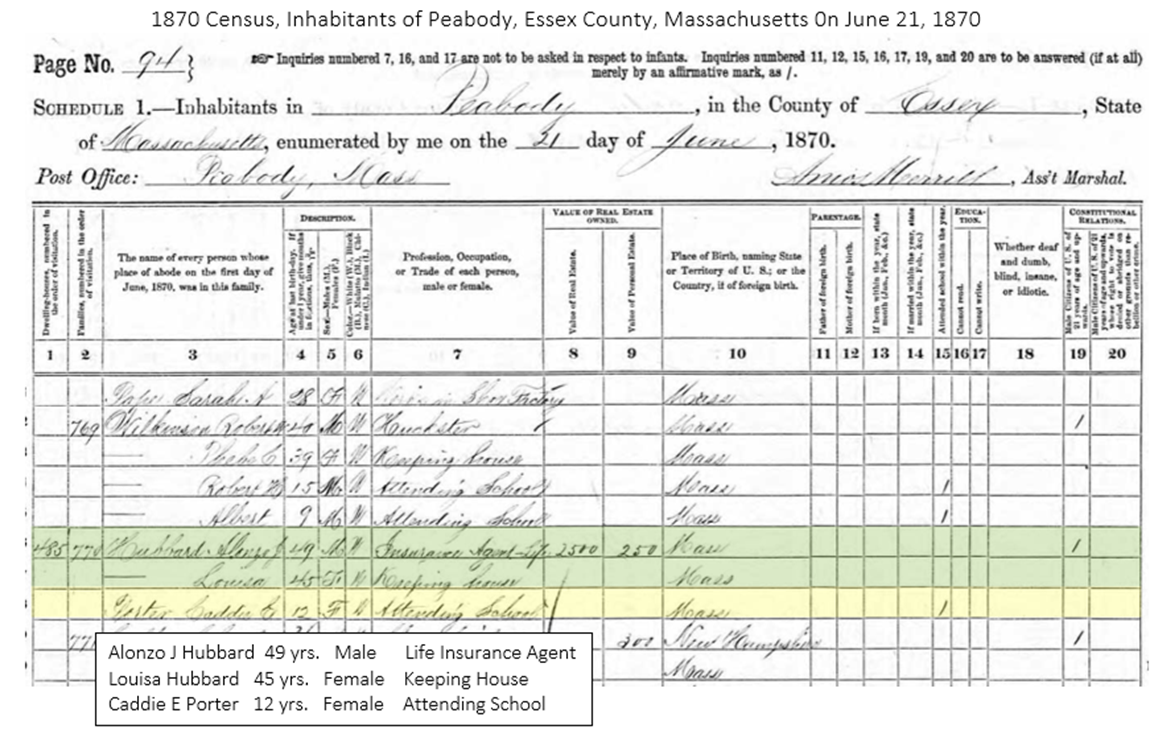 1870 Census, Inhabitants of Peabody, Essex County, Massachusetts 0n June 21, 1870
Page No. 94}
☞ Inquiries numbered 7, 16, and 17 are not to be asked in respect to infants. Inquiries numbered 11, 12, 15, 16, 17, 19, and 20 are to be answered (if at all)
merely by an affirmative mark, as /.
SCHEDULE 1.—Inhabitants in Peabody, in the County of Essex, State
of Massachusetts, enumerated by me on the 21 day of June, 1870.
Post Office: Peabody, Mass Amos Merrill, Ass't Marshal.
Dwelling-houses, numbered in the order of visitation.
Families, numbered in the order of visitation.
The name of every person whose place of abode on the first day of June, 1870, was in this family.
DESCRIPTION.
Age at last birth-day. If under 1 year, give months in fractions, thus,
Sex.—Males (M.), Females (F.)
Color.—White (W.), Black (B.), Mulatto (M.), Chinese (C.), Indian (I.)
Profession, Occupation, or Trade of each person, male or female.
VALUE OF REAL ESTATE OWNED.
Value of Real Estate.
Value of Personal Estate.
Place of Birth, naming State or Territory of U. S.; or the Country, if of foreign birth.
PARENTAGE.
Father of foreign birth.
Mother of foreign birth.
If born within the year, state month (Jan., Feb., &c.)
If married within the year, state month (Jan., Feb., &c.)
Attended school within the year.
EDUCATION.
Cannot read.
Cannot write.
Whether deaf and dumb, blind, insane, or idiotic.
CONSTITUTIONAL RELATIONS.
Male Citizens of U. S. of 21 years of age and upwards.
Male Citizens of U. S. of 21 years of age and upwards, whose right to vote is denied or abridged on other grounds than rebellion or other crime.
1 2 3 4 5 6 7 8 9 10 11 12 13 14 15 16 17 18 19 20
Sarah A 28 F W Shoe Factory Mass
769 Wilkinson Robert 40 M W Huckster Mass 1
Phebe C 39 F W Keeping house Mass
Robert 15 M W Attending School Mass 1
Albert 9 M W Attending School Mass 1
485 770 Hubbard Alonzo J 49 M W Insurance Agent-Life 2500 250 Mass 1
Louisa 45 F W Keeping house Mass
Porter Caddie E 12 F W Attending School Mass 1
771 300 New Hampshire 1
Mass
Alonzo J Hubbard 49 yrs. Male Life Insurance Agent
Louisa Hubbard 45 yrs. Female Keeping House
Caddie E Porter 12 yrs. Female Attending School